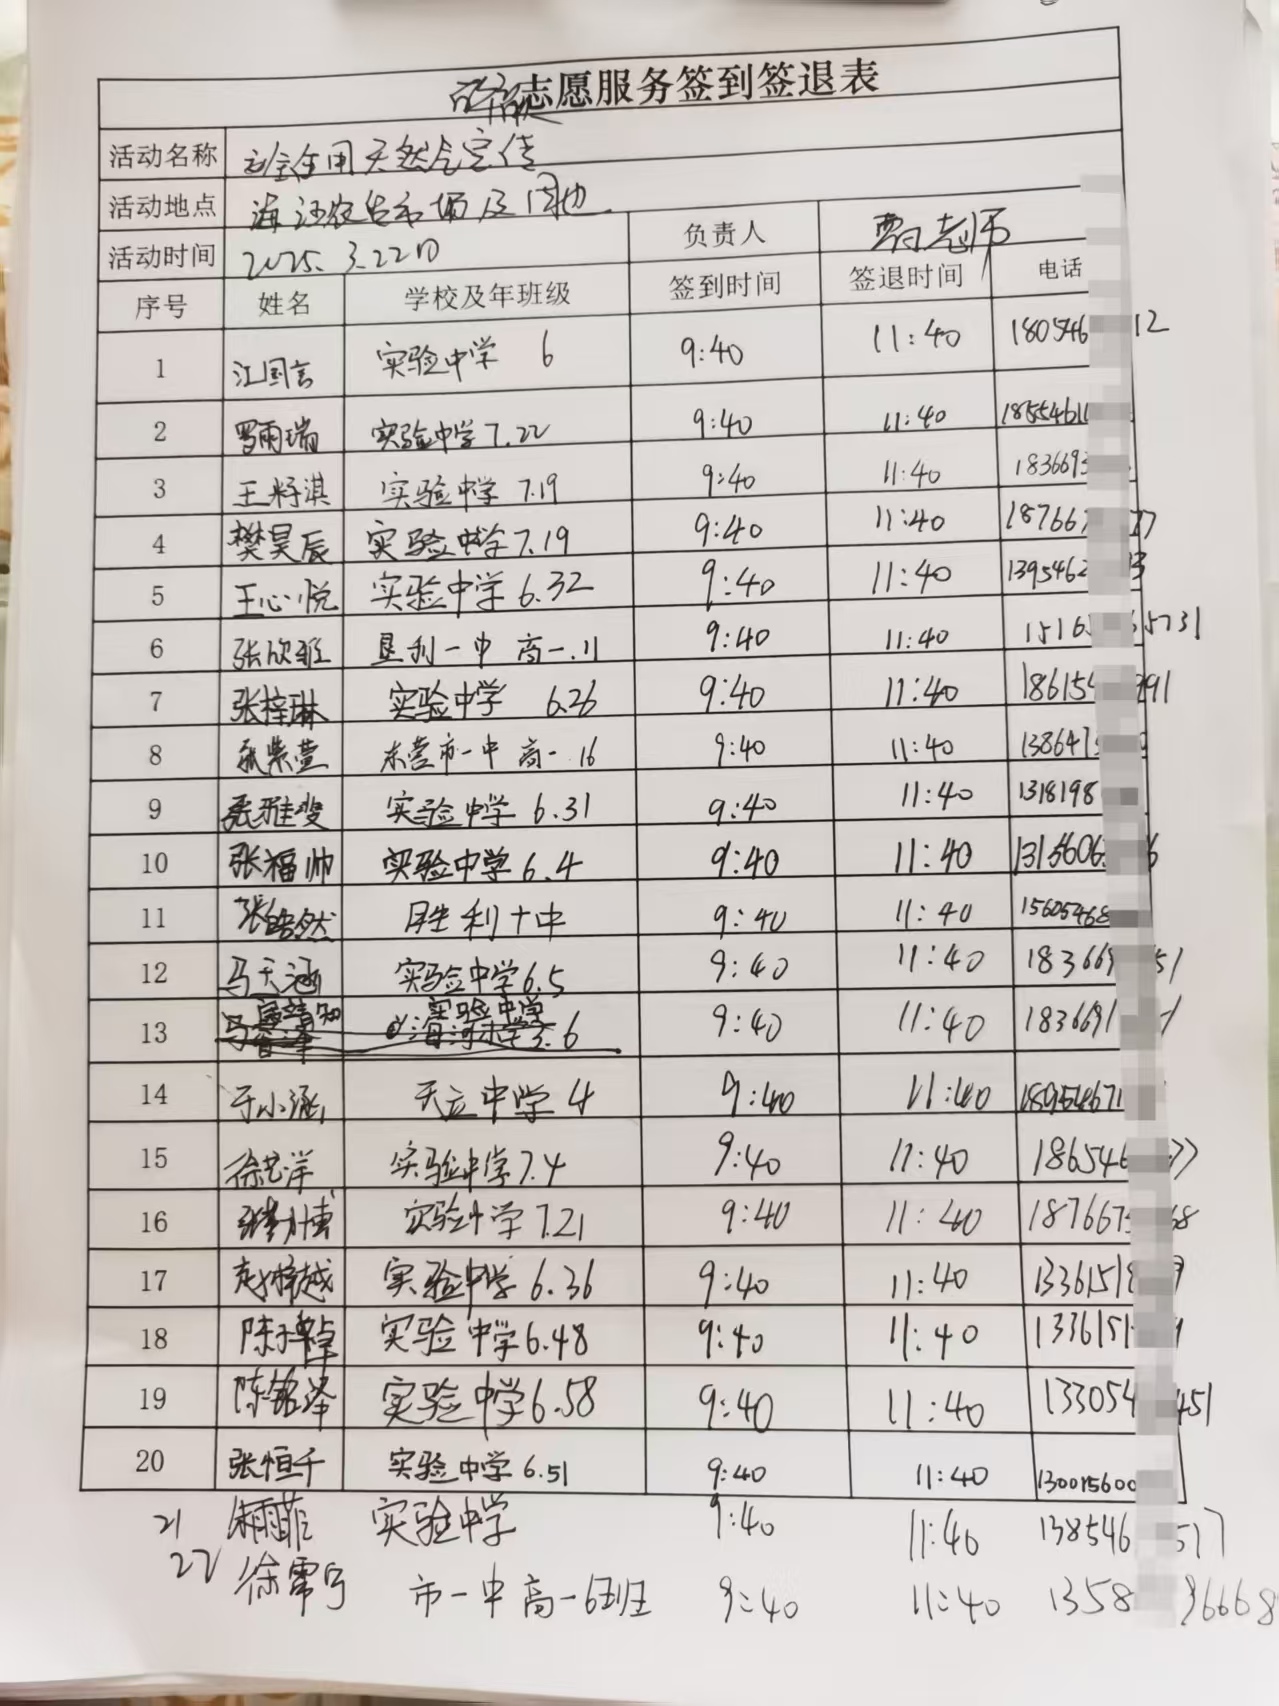 志愿服务签到签退表
活动名称 安全用天然气宣传
活动地点 海河农贸市场及周边
活动时间 2025.3.22日 负责人 老师
序号 姓名 学校及年班级 签到时间 签退时间 电话
1 江国言 实验中学 6 9:40 11:40 180546 12
2 罗雨瑞 实验中学7.22 9:40 11:40 18554611
3 王籽淇 实验中学 7.19 9:40 11:40 1836693
4 樊昊辰 实验中学7.19 9:40 11:40 187667 77
5 王心悦 实验中学6.32 9:40 11:40 1395462 3
6 张欣雅 垦利一中 高一.11 9:40 11:40 15163 65731
7 张梓琳 实验中学 6.26 9:40 11:40 186154 291
8 张紫萱 东营市一中 高一.16 9:40 11:40 1386475
9 聂雅斐 实验中学 6.31 9:40 11:40 1318198
10 张福帅 实验中学6.4 9:40 11:40 1315606 6
11 张皓然 胜利十中 9:40 11:40 15605468
12 马天涵 实验中学6.5 9:40 11:40 183669 51
13 实验中学 9:40 11:40 1836691
14 于小涵 天立中学 4 9:40 11:40 18954671
15 徐艺洋 实验中学7.4 9:40 11:40 186546 77
16 实验中学7.21 9:40 11:40 1876675 68
17 实验中学6.36 9:40 11:40 13361518 9
18 实验中学6.48 9:40 11:40 1336151
19 陈铭泽 实验中学6.58 9:40 11:40 133054 451
20 张恒千 实验中学6.51 9:40 11:40 130015600
21 朱雨菲 实验中学 9:40 11:40 138546 517
22 徐霈 市一中高一6班 9:40 11:40 1358 36668